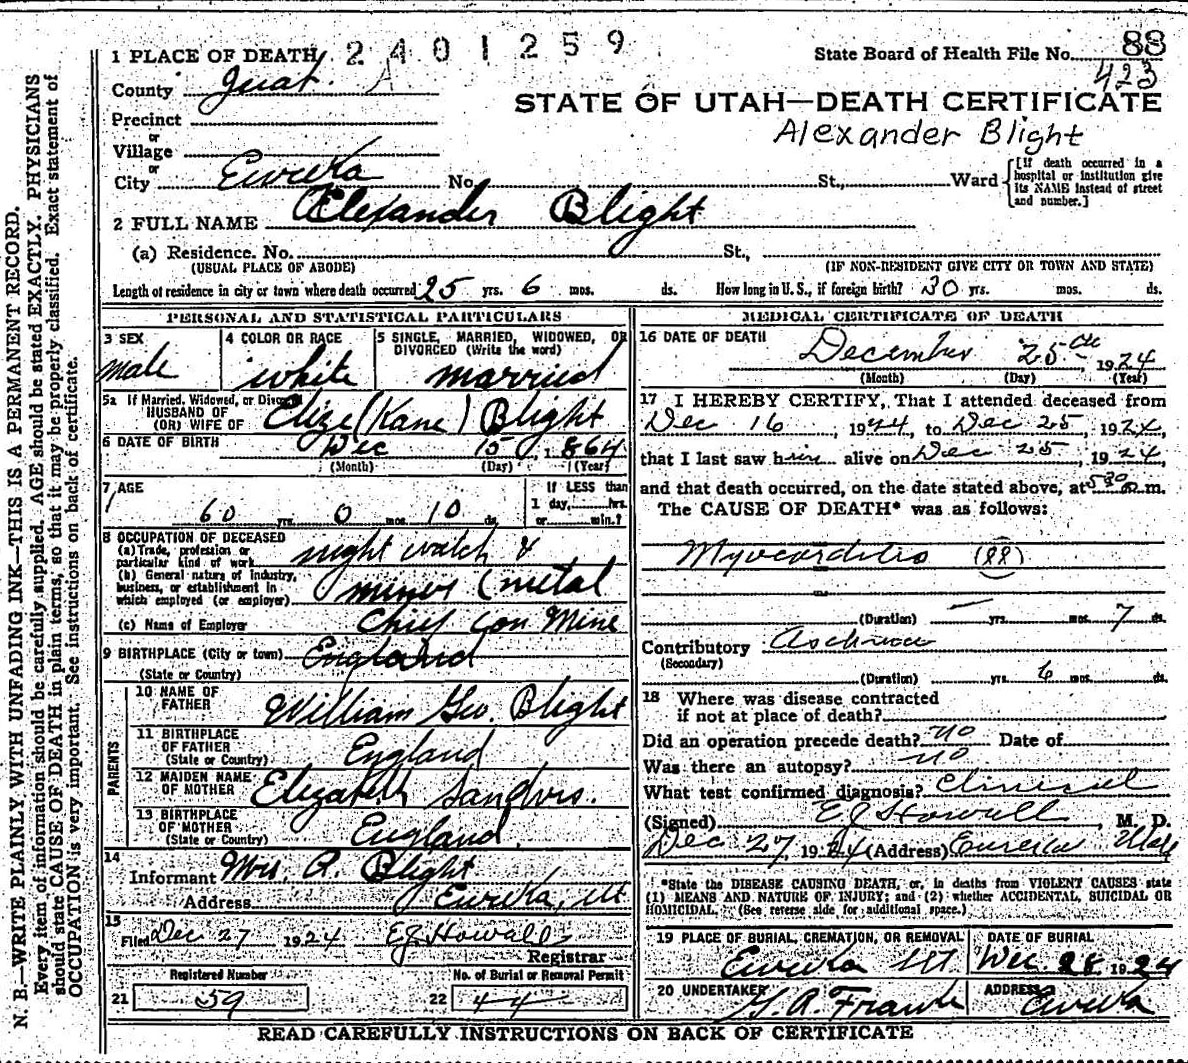 N. B.—WRITE PLAINLY WITH UNFADING INK—THIS IS A PERMANENT RECORD.
Every item of information should be carefully supplied. AGE should be stated EXACTLY. PHYSICIANS
should state CAUSE OF DEATH in plain terms, so that it may be properly classified. Exact statement of
OCCUPATION is very important. See instructions on back of certificate.
2401259
88
1 PLACE OF DEATH
State Board of Health File No.
423
County Juab. A
STATE OF UTAH—DEATH CERTIFICATE
Precinct
Alexander Blight
or
Village
or
City Eureka No. St., Ward
[If death occurred in a
hospital or institution give
its NAME instead of street
and number.]
2 FULL NAME Alexander Blight
(a) Residence. No. St.,
(USUAL PLACE OF ABODE) (IF NON-RESIDENT GIVE CITY OR TOWN AND STATE)
Length of residence in city or town where death occurred 25 yrs. 6 mos. ds. How long in U. S., if foreign birth? 30 yrs. mos. ds.
PERSONAL AND STATISTICAL PARTICULARS
3 SEX
male
4 COLOR OR RACE
white
5 SINGLE, MARRIED, WIDOWED, OR
DIVORCED (Write the word)
married
5a If Married, Widowed, or Divorced
HUSBAND OF
(OR) WIFE OF Elize (Kane) Blight
6 DATE OF BIRTH Dec 15, 1864
(Month) (Day) (Year)
7 AGE
60 yrs. 0 mos. 10 ds.
If LESS than
1 day, hrs.
or min.?
8 OCCUPATION OF DECEASED
(a) Trade, profession or
particular kind of work night watch &
(b) General nature of industry,
business, or establishment in
which employed (or employer) miner (metal
(c) Name of Employer Chief Con Mine
9 BIRTHPLACE (City or town) England
(State or Country)
PARENTS
10 NAME OF
FATHER William Geo. Blight
11 BIRTHPLACE
OF FATHER
(State or Country) England
12 MAIDEN NAME
OF MOTHER Elizabeth
13 BIRTHPLACE
OF MOTHER
(State or Country) England
14
Informant Mrs. A. Blight
Address Eureka, Ut
15
Filed Dec 27 1924 EJ Howell
Registrar
Registered Number
21 59
No. of Burial or Removal Permit
22 44
MEDICAL CERTIFICATE OF DEATH
16 DATE OF DEATH
December 25th 1924
(Month) (Day) (Year)
17 I HEREBY CERTIFY, That I attended deceased from
Dec 16, 1924, to Dec 25, 1924,
that I last saw him alive on Dec 25, 1924,
and that death occurred, on the date stated above, at 530 p.m.
The CAUSE OF DEATH* was as follows:
Myocarditis (88)
(Duration) yrs. mos. 7 ds.
Contributory
(Secondary)
(Duration) yrs. 6 mos. ds.
18 Where was disease contracted
if not at place of death?
Did an operation precede death? no Date of
Was there an autopsy? no
What test confirmed diagnosis? Clinical
(Signed) EJ Howell, M. D.
Dec 27, 1924 (Address) Eureka Utah
*State the DISEASE CAUSING DEATH, or, in deaths from VIOLENT CAUSES state
(1) MEANS AND NATURE OF INJURY; and (2) whether ACCIDENTAL, SUICIDAL OR
HOMICIDAL. (See reverse side for additional space.)
19 PLACE OF BURIAL, CREMATION, OR REMOVAL
Eureka Ut
DATE OF BURIAL
Dec. 28 1924
20 UNDERTAKER
ADDRESS
Eureka
READ CAREFULLY INSTRUCTIONS ON BACK OF CERTIFICATE